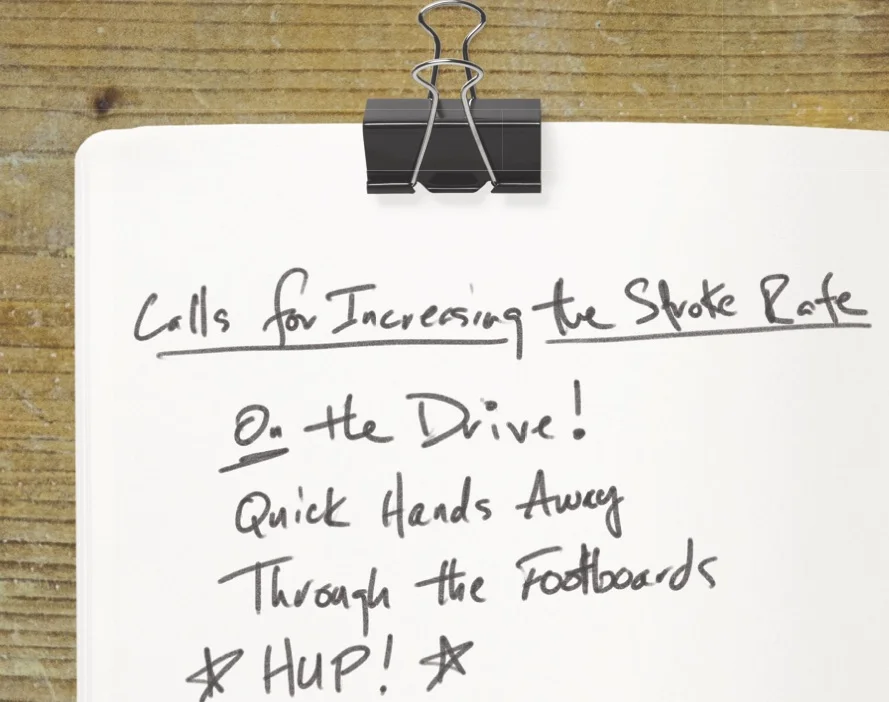 Calls for Increasing the Stroke Rate
On the Drive!
Quick Hands Away
Through the Footboards
☆ HUP! ☆